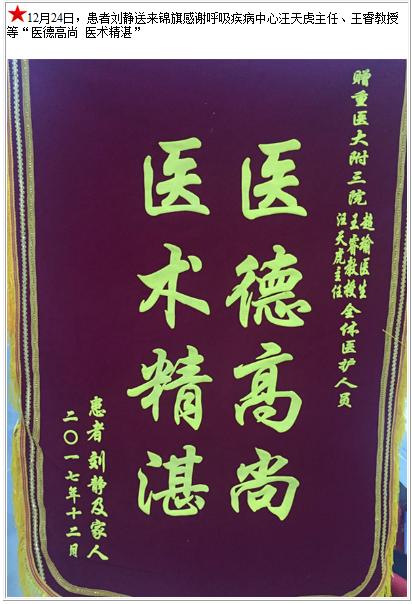 ★12月24日,患者刘静送来锦旗感谢呼吸疾病中心汪天虎主任、王睿教授
等“医德高尚 医术精湛”
赠重医大附三院
赵瑜医生
王睿教授
汪天虎主任
全体医护人员
医德高尚
医术精湛
患者刘静及家人
二〇一七年十二月